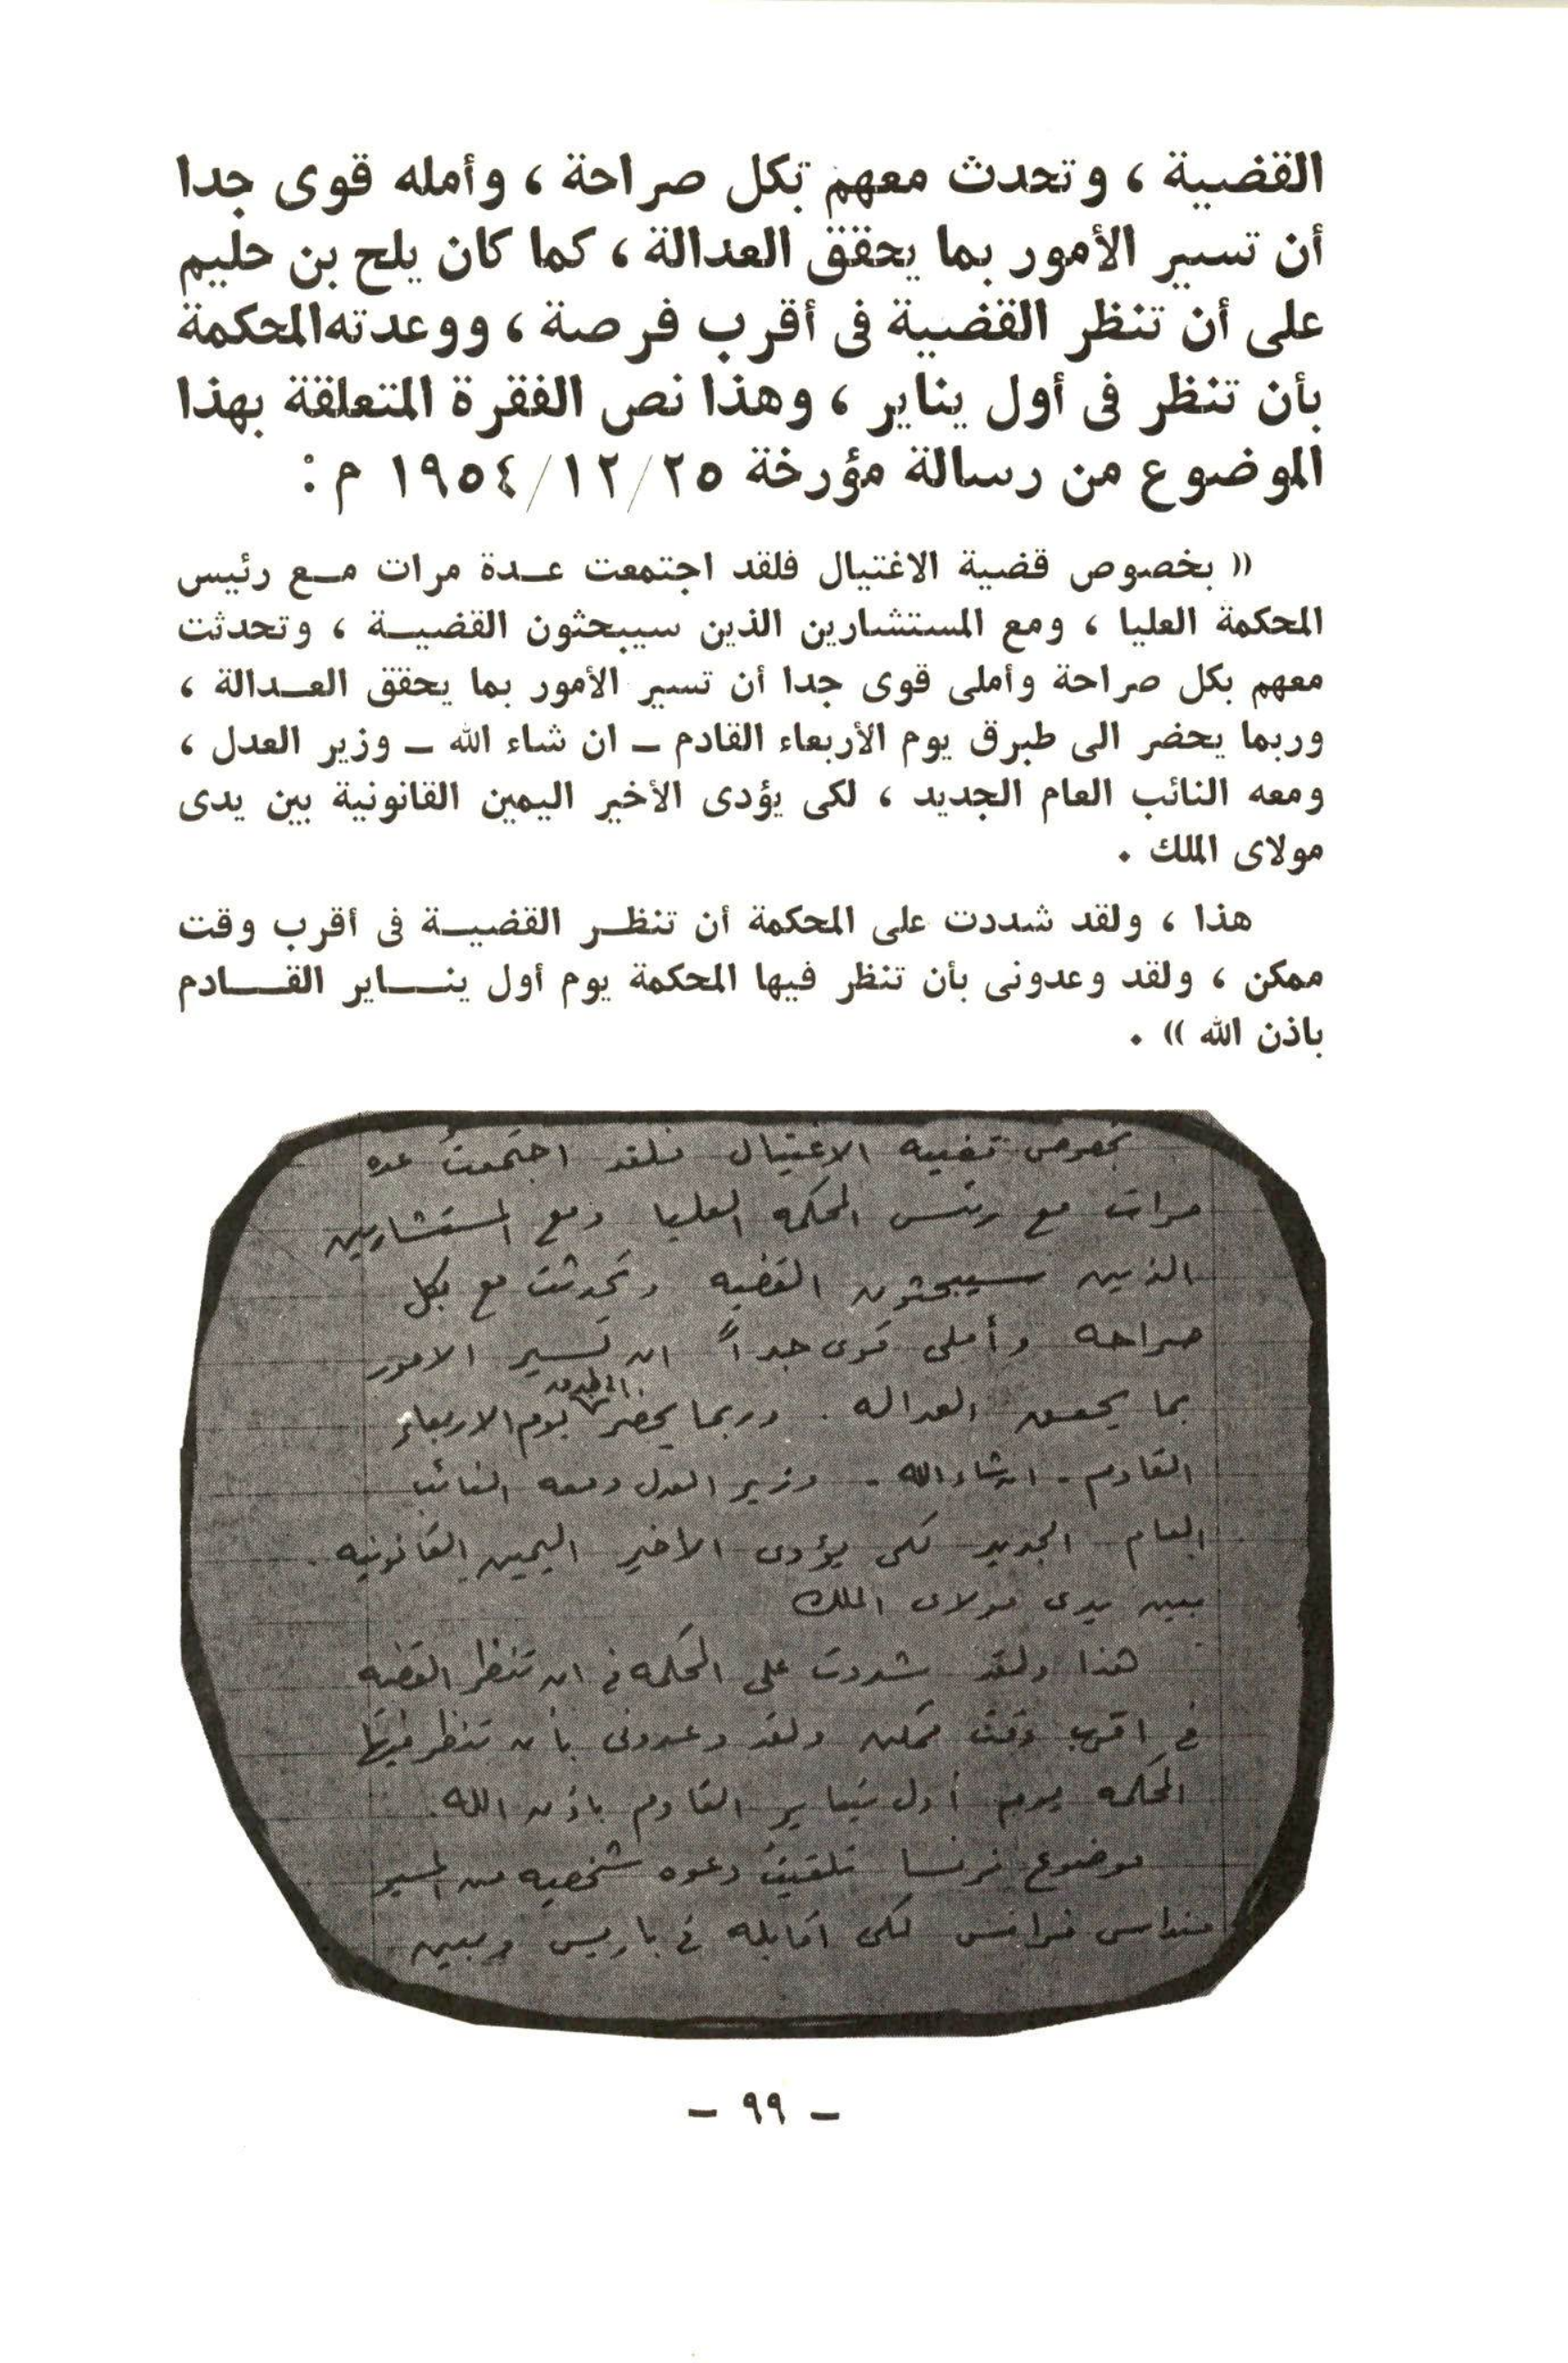 القضية ، وتحدث معهم بكل صراحة ، وأمله قوى جدا
أن تسير الأمور بما يحقق العدالة ، كما كان يلح بن حليم
على أن تنظر القضية فى أقرب فرصة ، ووعدته المحكمة
بأن تنظر فى أول يناير ، وهذا نص الفقرة المتعلقة بهذا
الموضوع من رسالة مؤرخة ١٩٥٤/١٢/٢٥ م :
(( بخصوص قضية الاغتيال فلقد اجتمعت عدة مرات مع رئيس
المحكمة العليا ، ومع المستشارين الذين سيبحثون القضية ، وتحدثت
معهم بكل صراحة وأملى قوى جدا أن تسير الأمور بما يحقق العدالة ،
وربما يحضر الى طبرق يوم الأربعاء القادم – ان شاء الله – وزير العدل ،
ومعه النائب العام الجديد ، لكى يؤدى الأخير اليمين القانونية بين يدى
مولاى الملك .
هذا ، ولقد شددت على المحكمة أن تنظر القضية فى أقرب وقت
ممكن ، ولقد وعدونى بأن تنظر فيها المحكمة يوم أول يناير القادم
باذن الله )) .
بخصوص قضيه الاغتيال فلقد اجتمعتُ عده
مرات مع رئيس المحكمه العليا ومع المستشارين
الذين سيبحثون القضيه وتحدثت مع بكل
صراحه وأملى قوى جداً ان تسير الامور
بما يحقق العداله . وربما يحضر الى طبرق يوم الاربعاء
القادم - ان شاء الله - وزير العدل ومعه النائب
العام الجديد لكى يؤدى الاخير اليمين القانونيه .
بين يدى مولاى الملك
هذا ولقد شددت على المحكمه فى ان تنظر القضيه
فى اقرب وقت ممكن ولقد وعدونى بأن تنظر فيها
المحكمه يوم أول يناير القادم باذن الله .
موضوع فرنسا تلقيتُ دعوه شخصيه من المسيو
منداس فرانس لكى اقابله فى باريس وبين
– ٩٩ –